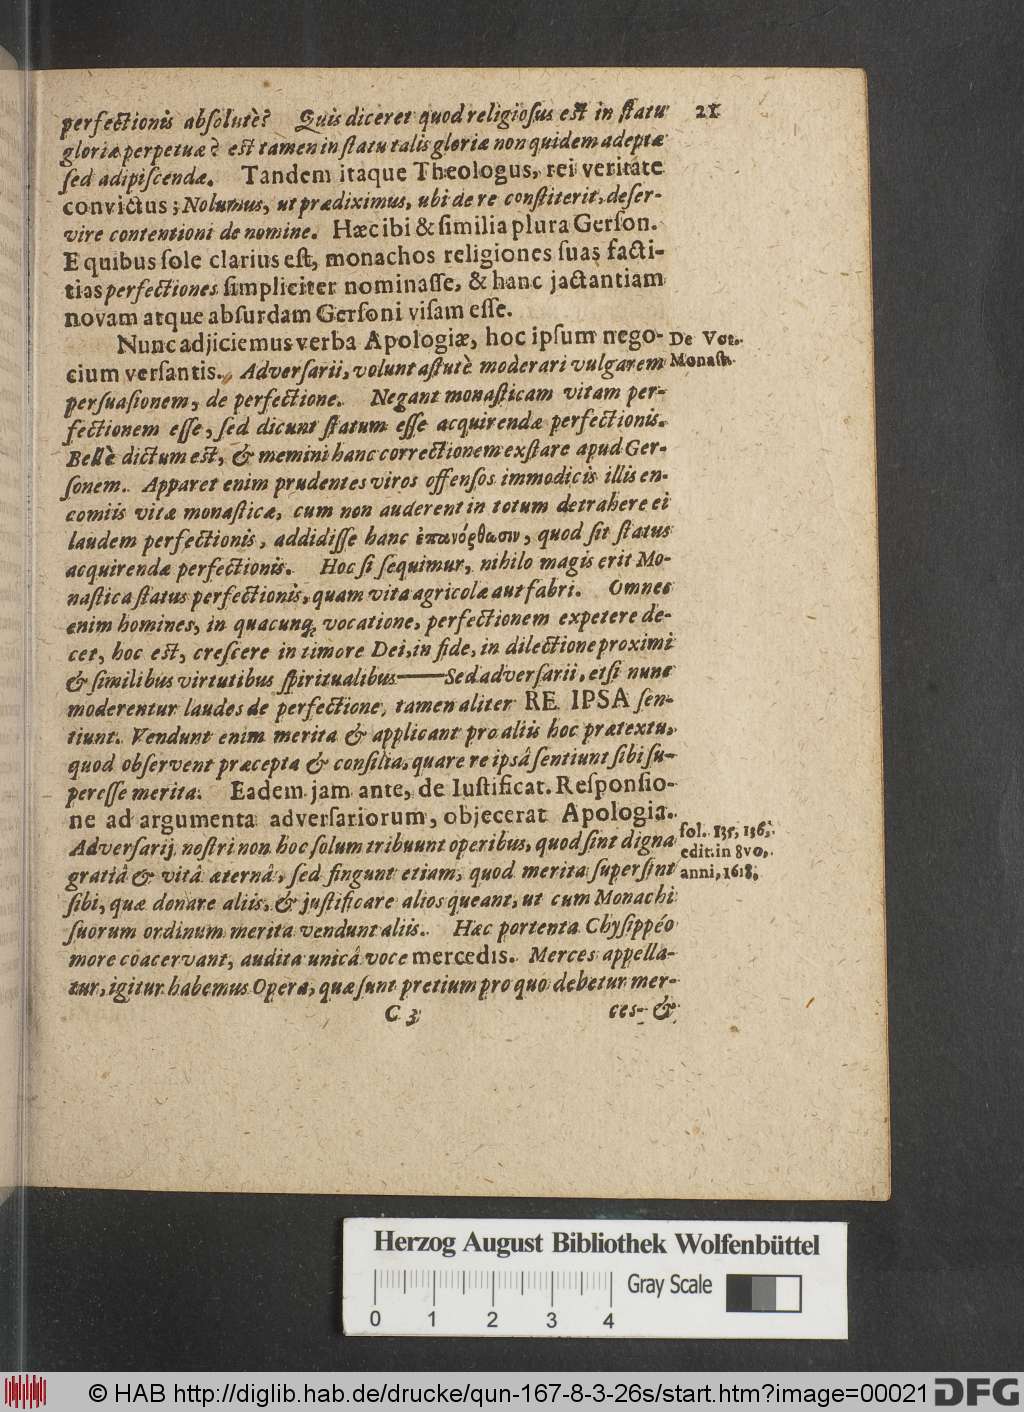 21
perfectionis absolutè? Quis diceret quod religiosus est in statu
gloriæ perpetuæ? est tamen in statu talis gloriæ non quidem adeptæ
sed adipiscendæ. Tandem itaque Theologus, rei veritate
convictus; Nolumus, ut prædiximus, ubi de re constiterit, deser-
vire contentioni de nomine. Hæc ibi & similia plura Gerson.
E quibus sole clarius est, monachos religiones suas facti-
tias perfectiones simpliciter nominasse, & hanc jactantiam
novam atque absurdam Gersoni visam esse.
Nunc adjiciemus verba Apologiæ, hoc ipsum nego-
De Vot.
cium versantis. Adversarii, volunt astutè moderari vulgarem
Monast.
persuasionem, de perfectione. Negant monasticam vitam per-
fectionem esse, sed dicunt statum esse acquirendæ perfectionis.
Bellè dictum est, & memini hanc correctionem exstare apud Ger-
sonem. Apparet enim prudentes viros offensos immodicis illis en-
comiis vitæ monasticæ, cum non auderent in totum detrahere ei
laudem perfectionis, addidisse hanc ἐπανόρθωσιν, quod sit status
acquirendæ perfectionis. Hoc si sequimur, nihilo magis erit Mo-
nastica status perfectionis, quam vita agricolæ aut fabri. Omnes
enim homines, in quacunq; vocatione, perfectionem expetere de-
cet, hoc est, crescere in timore Dei, in fide, in dilectione proximi
& similibus virtutibus spiritualibus—— Sed adversarii, etsi nunc
moderentur laudes de perfectione, tamen aliter RE IPSA sen-
tiunt. Vendunt enim merita & applicant pro aliis hoc prætextu,
quod observent præcepta & consilia, quare re ipsâ sentiunt sibi su-
peresse merita. Eadem jam ante, de Iustificat. Responsio-
ne ad argumenta adversariorum, objecerat Apologia.
fol. 135, 136,
Adversarij nostri non hoc solum tribuunt operibus, quod sint digna
edit. in 8vo,
gratiâ & vitâ æternâ, sed fingunt etiam, quod merita supersint
anni, 1618,
sibi, quæ donare aliis, & justificare alios queant, ut cum Monachi
suorum ordinum merita vendunt aliis. Hæc portenta Chysippéo
more coacervant, audita unicâ voce mercedis. Merces appella-
tur, igitur habemus Opera, quæ sunt pretium pro quo debetur mer-
C 3
ces- &
Herzog August Bibliothek Wolfenbüttel
Gray Scale
0 1 2 3 4
© HAB http://diglib.hab.de/drucke/qun-167-8-3-26s/start.htm?image=00021
DFG